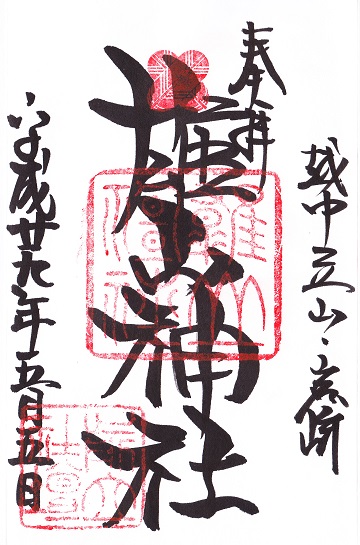 奉拝
越中立山・岩峅
雄山神社
平成廿九年五月五日